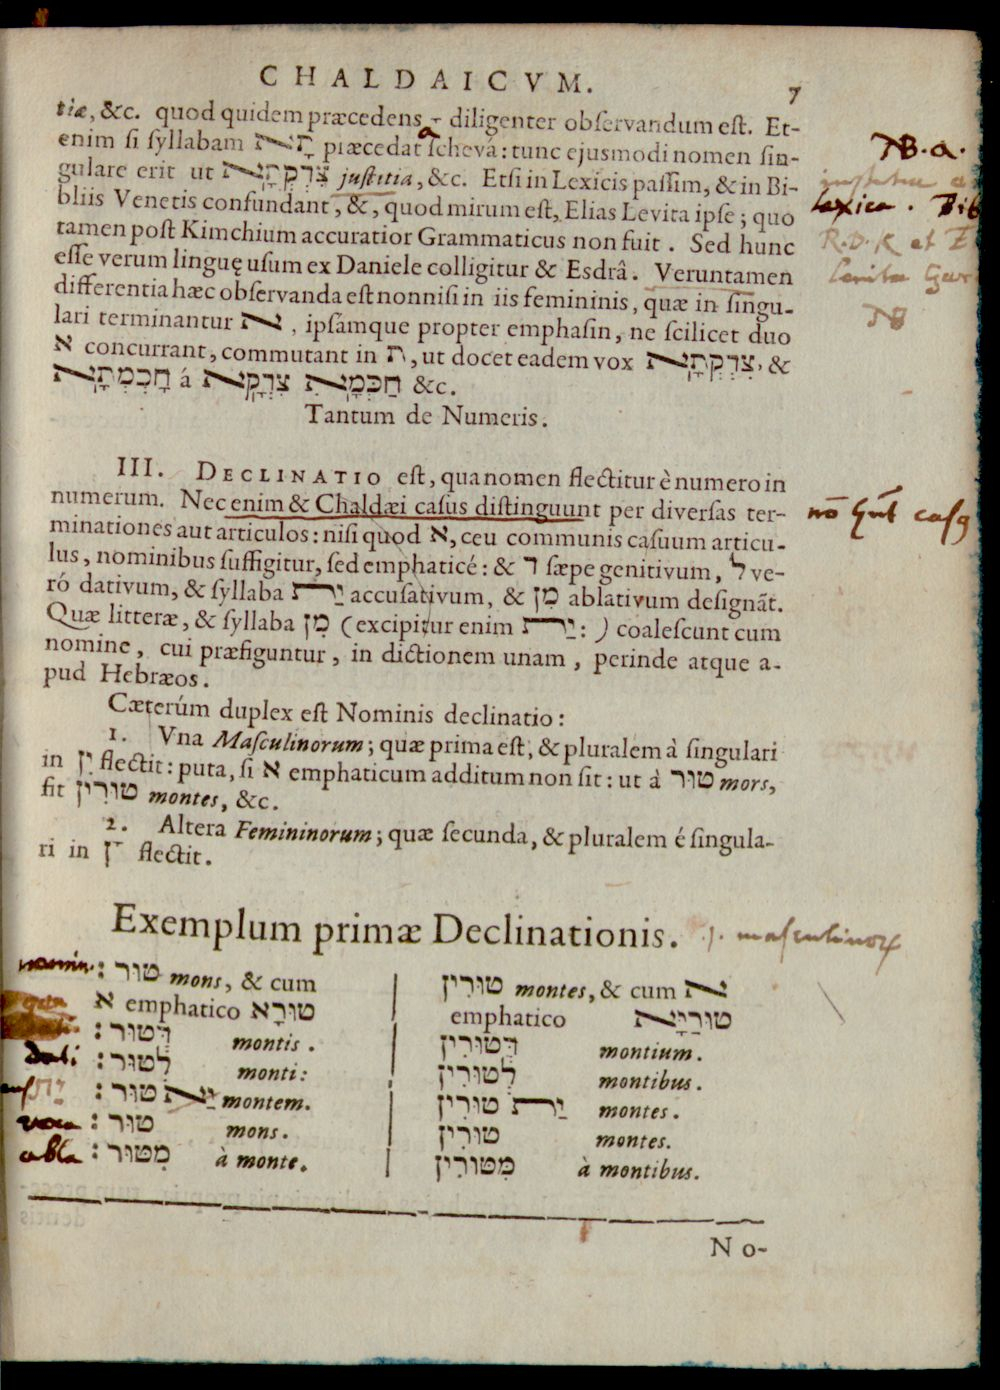 CHALDAICVM. 7
tiæ, &c. quod quidem præcedens ָ diligenter observandum est. Et-
enim si syllabam תָא præcedat schevá: tunc ejusmodi nomen sin-
gulare erit ut צִדְקְתָא justitia, &c. Etsi in Lexicis passim, & in Bi-
bliis Venetis confundant, &, quod mirum est, Elias Levita ipse; quo
tamen post Kimchium accuratior Grammaticus non fuit. Sed hunc
esse verum linguę usum ex Daniele colligitur & Esdrâ. Veruntamen
differentia hæc observanda est nonnisi in iis femininis, quæ in singu-
lari terminantur א, ipsamque propter emphasin, ne scilicet duo
א concurrant, commutant in ת, ut docet eadem vox צִדְקְתָא, &
חָכְמְתָא á צִדְקָא חַכְּמָא &c.
Tantum de Numeris.
III. DECLINATIO est, qua nomen flectitur è numero in
numerum. Nec enim & Chaldæi casus distinguunt per diversas ter-
minationes aut articulos: nisi quod א, ceu communis casuum articu-
lus, nominibus suffigitur, sed emphaticé: & ד sæpe genitivum, ל ve-
ró dativum, & syllaba יַת accusativum, & מִן ablativum designāt.
Quæ litteræ, & syllaba מִן (excipitur enim יַת:) coalescunt cum
nomine, cui præfiguntur, in dictionem unam, perinde atque a-
pud Hebræos.
Cæterúm duplex est Nominis declinatio:
1. Vna Masculinorum; quæ prima est, & pluralem à singulari
in ִין flectit: puta, si א emphaticum additum non sit: ut à טוּר mors,
fit טוּרִין montes, &c.
2. Altera Femininorum; quæ secunda, & pluralem é singula-
ri in ָן flectit.
Exemplum primæ Declinationis. masculinor
nomin: טוּר mons, & cum
א emphatico טוּרָא
: דְּטוּר montis.
dati : לְטוּר monti:
יַת : יַת טוּר montem.
voca : טוּר mons.
abla : מִטּוּר à monte.
טוּרִין montes, & cum א
emphatico טוּרַיָּא
דְּטוּרִין montium.
לְטוּרִין montibus.
יַת טוּרִין montes.
טוּרִין montes.
מִטּוּרִין à montibus.
No-
NB. a.
Lexica. Bib
R.D. K et E
NB
nō sūt casꝰ